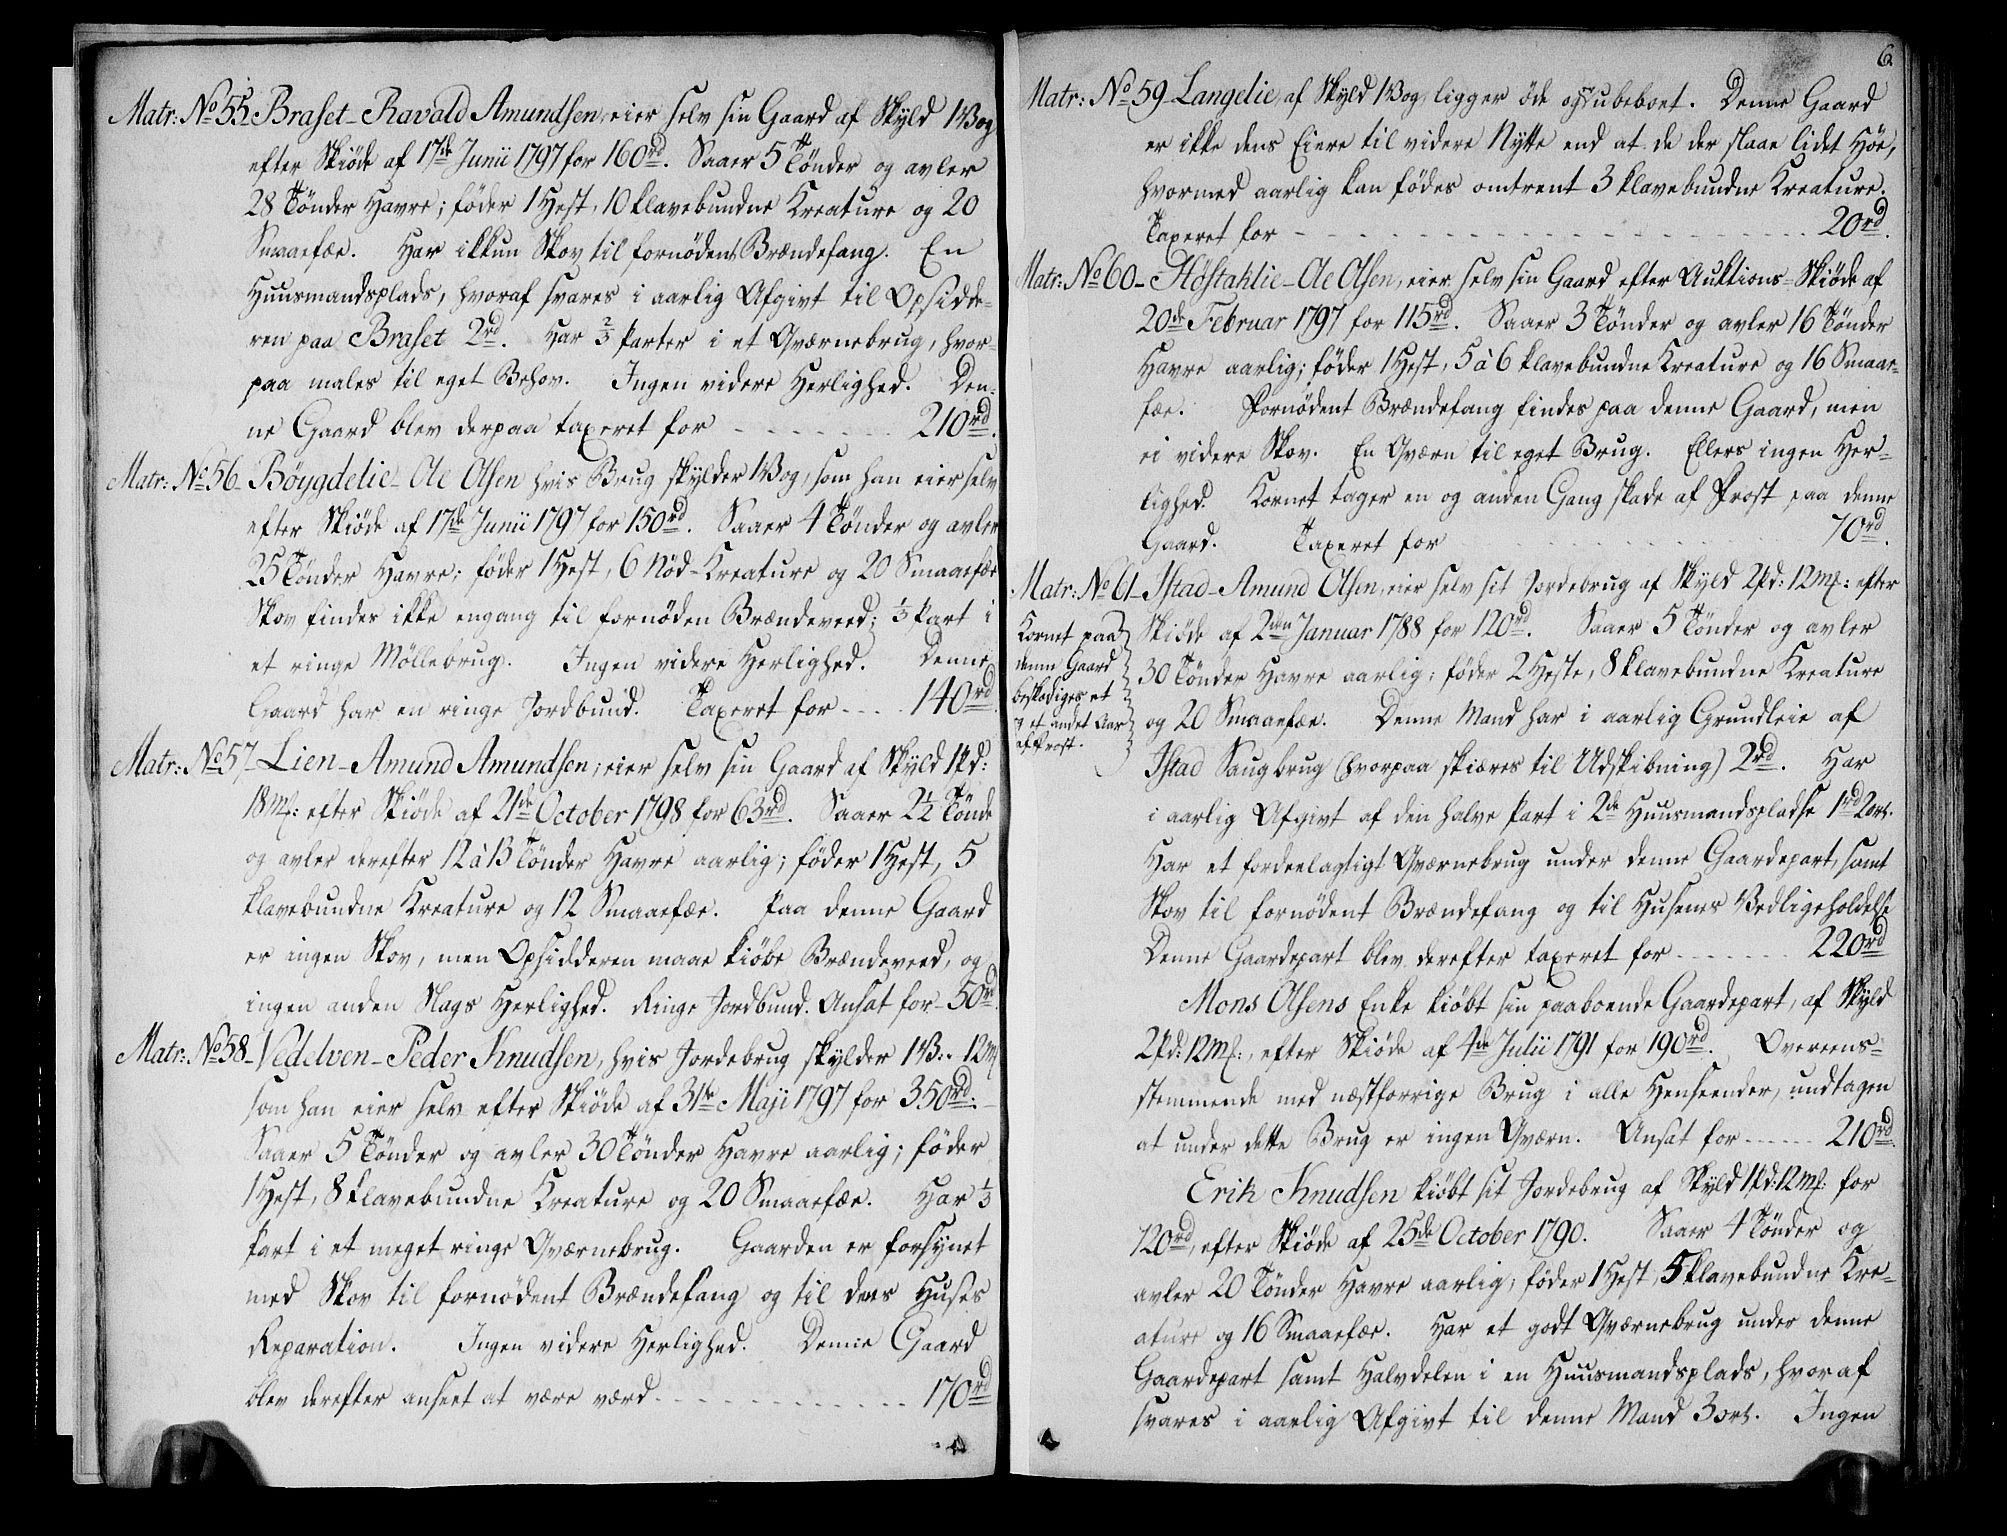 Matr: No 55 - Braset - Ravald Amundsen, eier selv sin Gaard af Skyld 1 Vog
efter Skiöde af 17de Junii 1797 for 160rd. Saaer 5 Tönder og avler
28 Tönder Havre; föder 1 Hest, 10 klavebundne Kreature og 20
Smaaefæe. Har ikkun Skov til fornödent Brændefang. En
Huusmandsplads, hvoraf svares i aarlig Afgivt til Opsidde-
ren paa Braset 2rd. Har 2/3 Parter i et Qværnebrug, hvor-
paa males til eget Behov. Ingen videre Herlighed. Den-
ne Gaard blev derpaa taxeret for - - - - - - - 210rd.
Matr: No 56 - Böygdelie - Ole Olsen hvis Brug skylder 1 Vog, som han eier selv
efter Skiöde af 17de Junii 1797 for 150rd. Saaer 4 Tönder og avler
25 Tönder Havre; föder 1 Hest, 6 Nöd-Kreature og 20 Smaaefæe
Skov findes ikke engang til fornöden Brændeveed; 1/3 Part i
et ringe Möllebrug. Ingen videre Herlighed. Denne
Gaard har en ringe Jordbund. Taxeret for - - - 140rd.
Matr: No 57 - Lien - Amund Amundsen, eier selv sin Gaard af Skyld 1 Pd:
18 Mk: efter Skiöde af 21de October 1798 for 63rd. Saaer 2 1/2 Tönde
og avler derefter 12 à 13 Tönder Havre aarlig; föder 1 Hest, 5
klavebundne Kreature og 12 Smaaefæe. Paa denne Gaard
er ingen Skov, men Opsidderen maae kiöbe Brændeveed, og
ingen anden Slags Herlighed. Ringe Jordbund. Ansat for - 50rd.
Matr: No 58 - Vedelven - Peder Knudsen, hvis Jordebrug skylder 1 V: 12 Mk
som han eier selv efter Skiöde af 31te Maji 1797 for 350rd. -
Saaer 5 Tönder og avler 30 Tönder Havre aarlig; föder
1 Hest, 8 klavebundne Kreature og 20 Smaaefæe. Har 1/3
Part i et meget ringe Qværnebrug. Gaarden er forsynet
med Skov til fornödent Brændefang og til dens Huses
Reparation. Ingen videre Herlighed. Denne Gaard
blev derefter anseet at være værd - - - - - - - - 170rd
6
Matr: No 59 - Langelie, af Skyld 1 Vog, ligger öde og ubeboet. Denne Gaard
er ikke dens Eiere til videre Nytte end at de der slaae lidet Höe,
hvormed aarlig kan födes omtrent 3 klavebundne Kreature.
Taxeret for - - - - - - - - - - - - - - - - 20rd.
Matr: No 60 - Höstaklie - Ole Olsen, eier selv sin Gaard efter Auktions-Skiöde af
20de Februar 1797 for 115rd. Saaer 3 Tönder og avler 16 Tönder
Havre aarlig; föder 1 Hest, 5 à 6 klavebundne Kreature og 16 Smaae-
fæe. Fornödent Brændefang findes paa denne Gaard, men
ei videre Skov. En Qværn til eget Brug. Ellers ingen Her-
lighed. Kornet tager en og anden Gang skade af Frost paa denne
Gaard. Taxeret for - - - - - - - 70rd.
Matr: No 61 - Istad - Amund Olsen, eier selv sit Jordebrug af Skyld 2 Pd: 12 Mk: efter
Skiöde af 2den Januar 1788 for 120rd. Saaer 5 Tönder og avler
30 Tönder Havre aarlig; föder 2 Heste, 8 klavebundne Kreature
og 20 Smaaefæe. Denne Mand har i aarlig Grundleie af
Istad Saugbrug (hvorpaa skiæres til Udskibning) 2rd. Har
i aarlig Afgivt af den halve Part i 2de Huusmandspladse 1rd 2ort.
Har et fordeelagtigt Qværnebrug under denne Gaardepart, samt
Skov til fornödent Brændefang og til Husenes Vedligeholdelse
Denne Gaardepart blev derefter taxeret for - - - - - - 220rd
Kornet paa
denne Gaard
beskadiges et
og et andet Aar
af Frost.
Mons Olsens Enke kiöbt sin paaboende Gaardepart, af Skyld
2 Pd: 12 Mk:, efter Skiöde af 4de Julii 1791 for 190rd. Overeens-
stemmende med næstforrige Brug i alle Henseender, undtagen
at under dette Brug er ingen Qværn. Ansat for - - - - - 210rd.
Erik Knudsen kiöbt sit Jordebrug af Skyld 1 Pd: 12 Mk: for
120rd, efter Skiöde af 25de October 1790. Saaer 4 Tönder og
avler 20 Tönder Havre aarlig; föder 1 Hest, 5 klavebundne Kre-
ature og 16 Smaaefæe. Har et godt Qværnebrug under denne
Gaardepart samt Halvdelen i en Huusmandsplads, hvoraf
svares i aarlig Afgivt til denne Mand 3 ort. Ingen